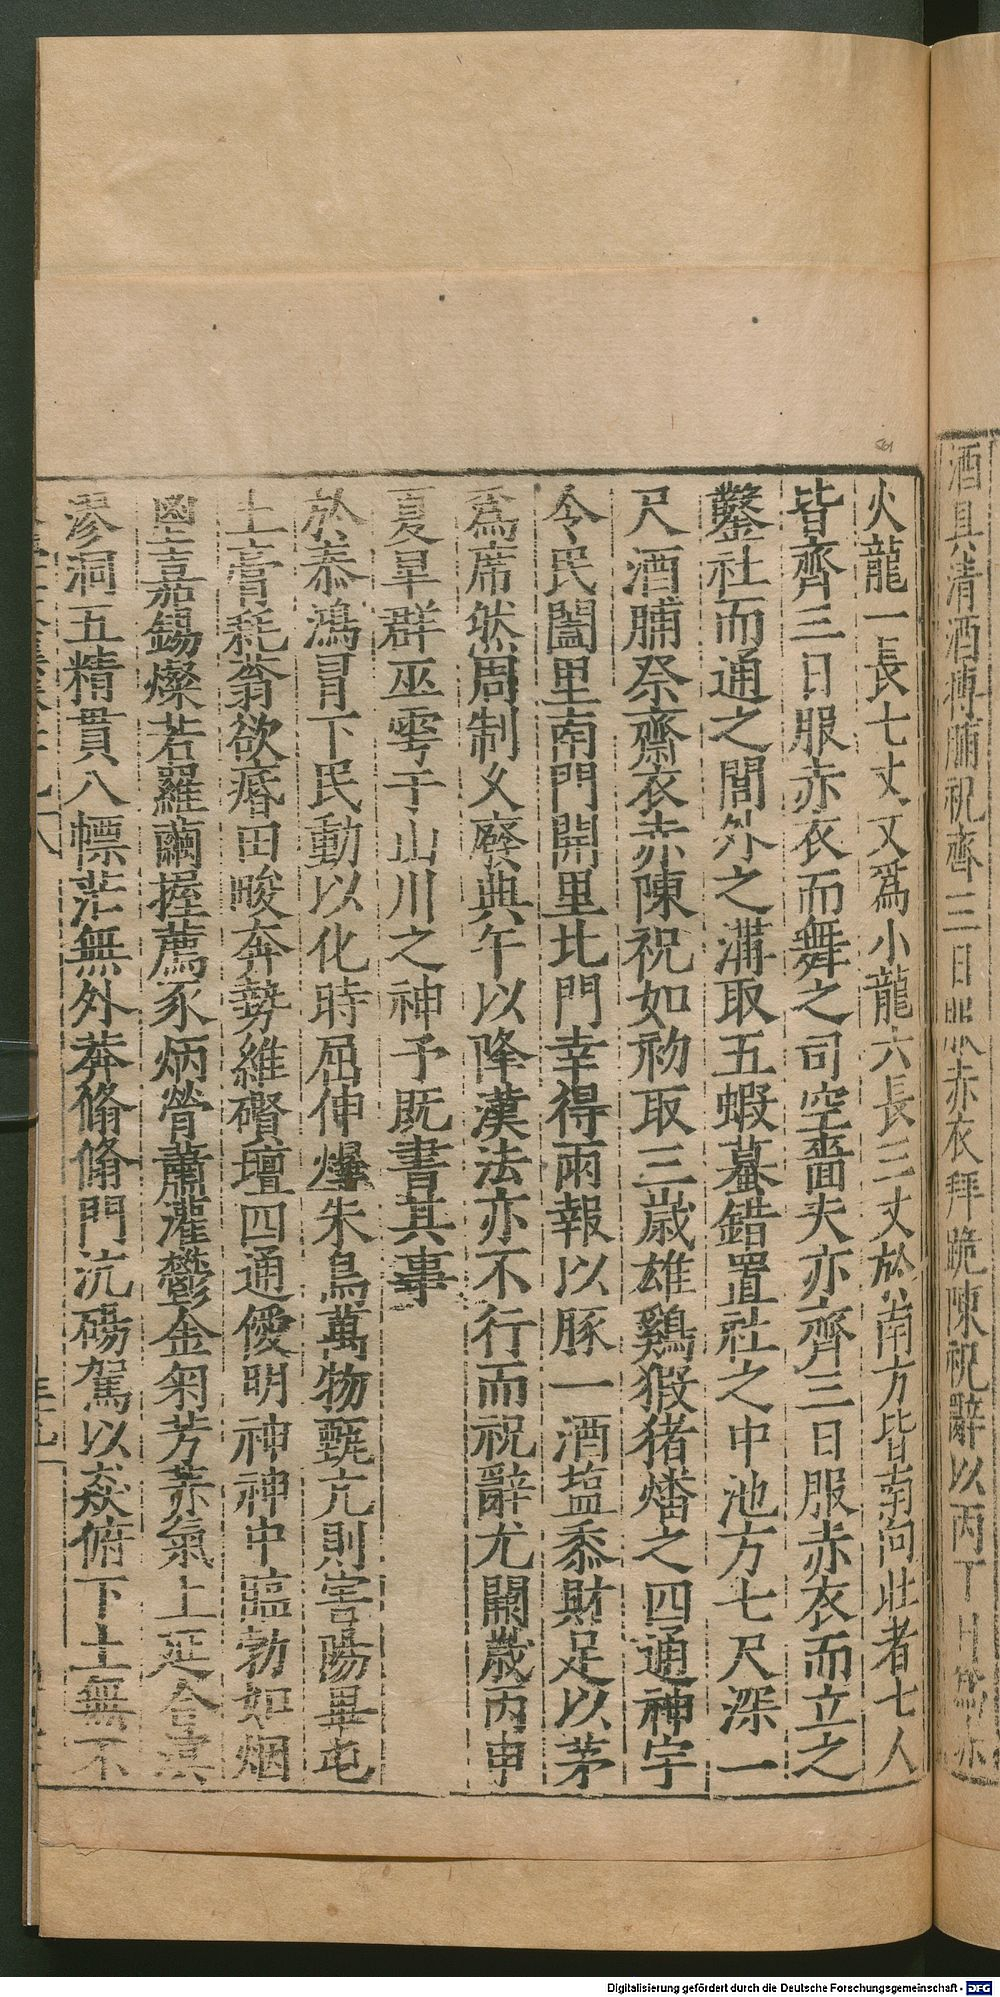 酒具清酒搏脯祝齊三日服赤衣拜跪陳祝辭以丙丁日爲赤
火龍一長七丈又爲小龍六長三丈於南方皆南向壯者七人
皆齊三日服赤衣而舞之司空嗇夫亦齊三日服赤衣而立之
鑿社而通之閭外之溝取五蝦蟇錯置社之中池方七尺深一
尺酒脯祭齋衣赤陳祝如初取三歲雄鷄猳猪燔之四通神宇
令民闔里南門開里北門幸得雨報以豚一酒塩黍財足以茅
爲席然周制久廢典午以降漢法亦不行而祝辭尤闕歲丙申
夏旱群巫雩于山川之神予旣書其事
於泰鴻冒下民動以化時屈伸爆朱鳥萬物甄亢則害陽畢屯
土膏秏蓊欲㾾田畯奔勢維礥壇四通僾明神神中臨勃如烟
塁言嘉錫燦若羅繭握薦豕炳膋蕭灌鬱金匊芳菾氣上延合溟
滲洞五精貫八幖茫無外莽翛翛門沆碭駕以猋俯下土無不
Digitalisierung gefördert durch die Deutsche Forschungsgemeinschaft - DFG